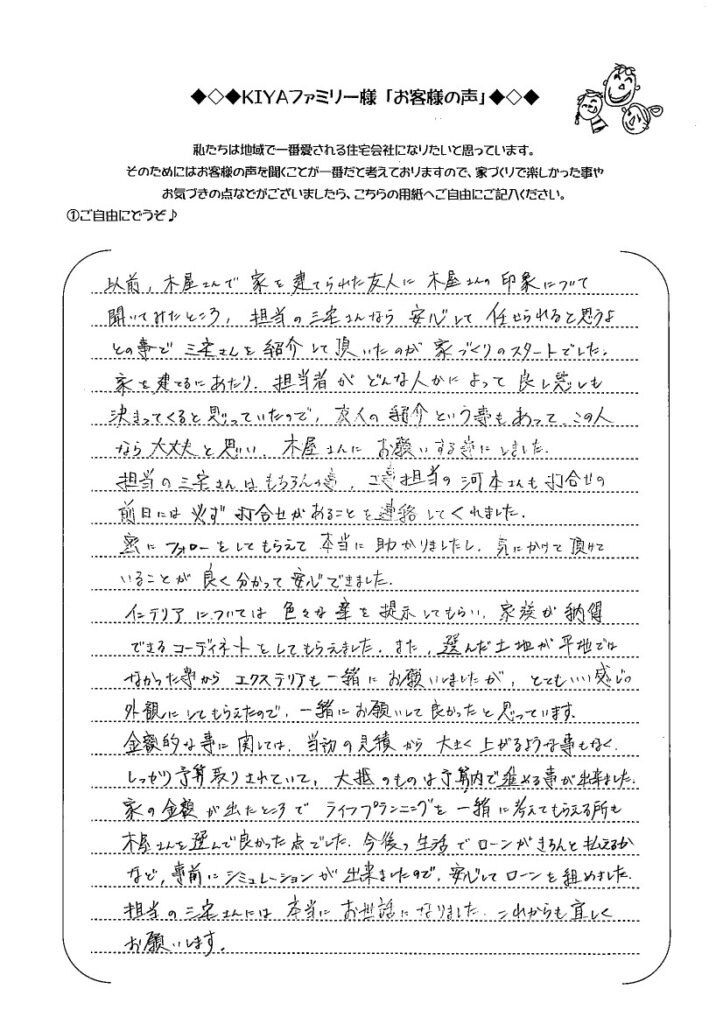 ◆◇◆KIYAファミリー様「お客様の声」◆◇◆
私たちは地域で一番愛される住宅会社になりたいと思っています。
そのためにはお客様の声を聞くことが一番だと考えておりますので、家づくりで楽しかった事や
お気づきの点などがございましたら、こちらの用紙へご自由にご記入ください。
①ご自由にどうぞ♪
以前、木屋さんで家を建てられた友人に木屋さんの印象について
聞いてみたところ、担当の三宅さんなら安心して任せられると思うよ
との事で三宅さんを紹介して頂いたのが家づくりのスタートでした。
家を建てるにあたり、担当者がどんな人かによって良し悪しも
決まってくると思っていたので、友人の紹介という事もあって、この人
なら大丈夫と思い、木屋さんにお願いする事にしました。
担当の三宅さんはもちろんの事、工事担当の河本さんも打合せの
前日には必ず打合せがあることを連絡してくれました。
密にフォローをしてもらえて本当に助かりましたし、気にかけて頂けて
いることが良く分かって安心できました。
インテリアについては色々な案を提示してもらい、家族が納得
できるコーディネートをしてもらえました。また、選んだ土地が平地では
なかった事からエクステリアも一緒にお願いしましたが、とてもいい感じの
外観にしてもらえたので、一緒にお願いして良かったと思っています。
金額的な事に関しては、当初の見積から大きく上がるような事もなく、
しっかり予算取りされていて、大抵のものは予算内で進める事が出来ました。
家の金額が出たところでライフプランニングを一緒に考えてもらえる所も
木屋さんを選んで良かった点でした。今後の生活でローンがきちんと払えるか
など、事前にシミュレーションが出来ましたので、安心してローンを組めました。
担当の三宅さんには本当にお世話になりました。これからも宜しく
お願いします。